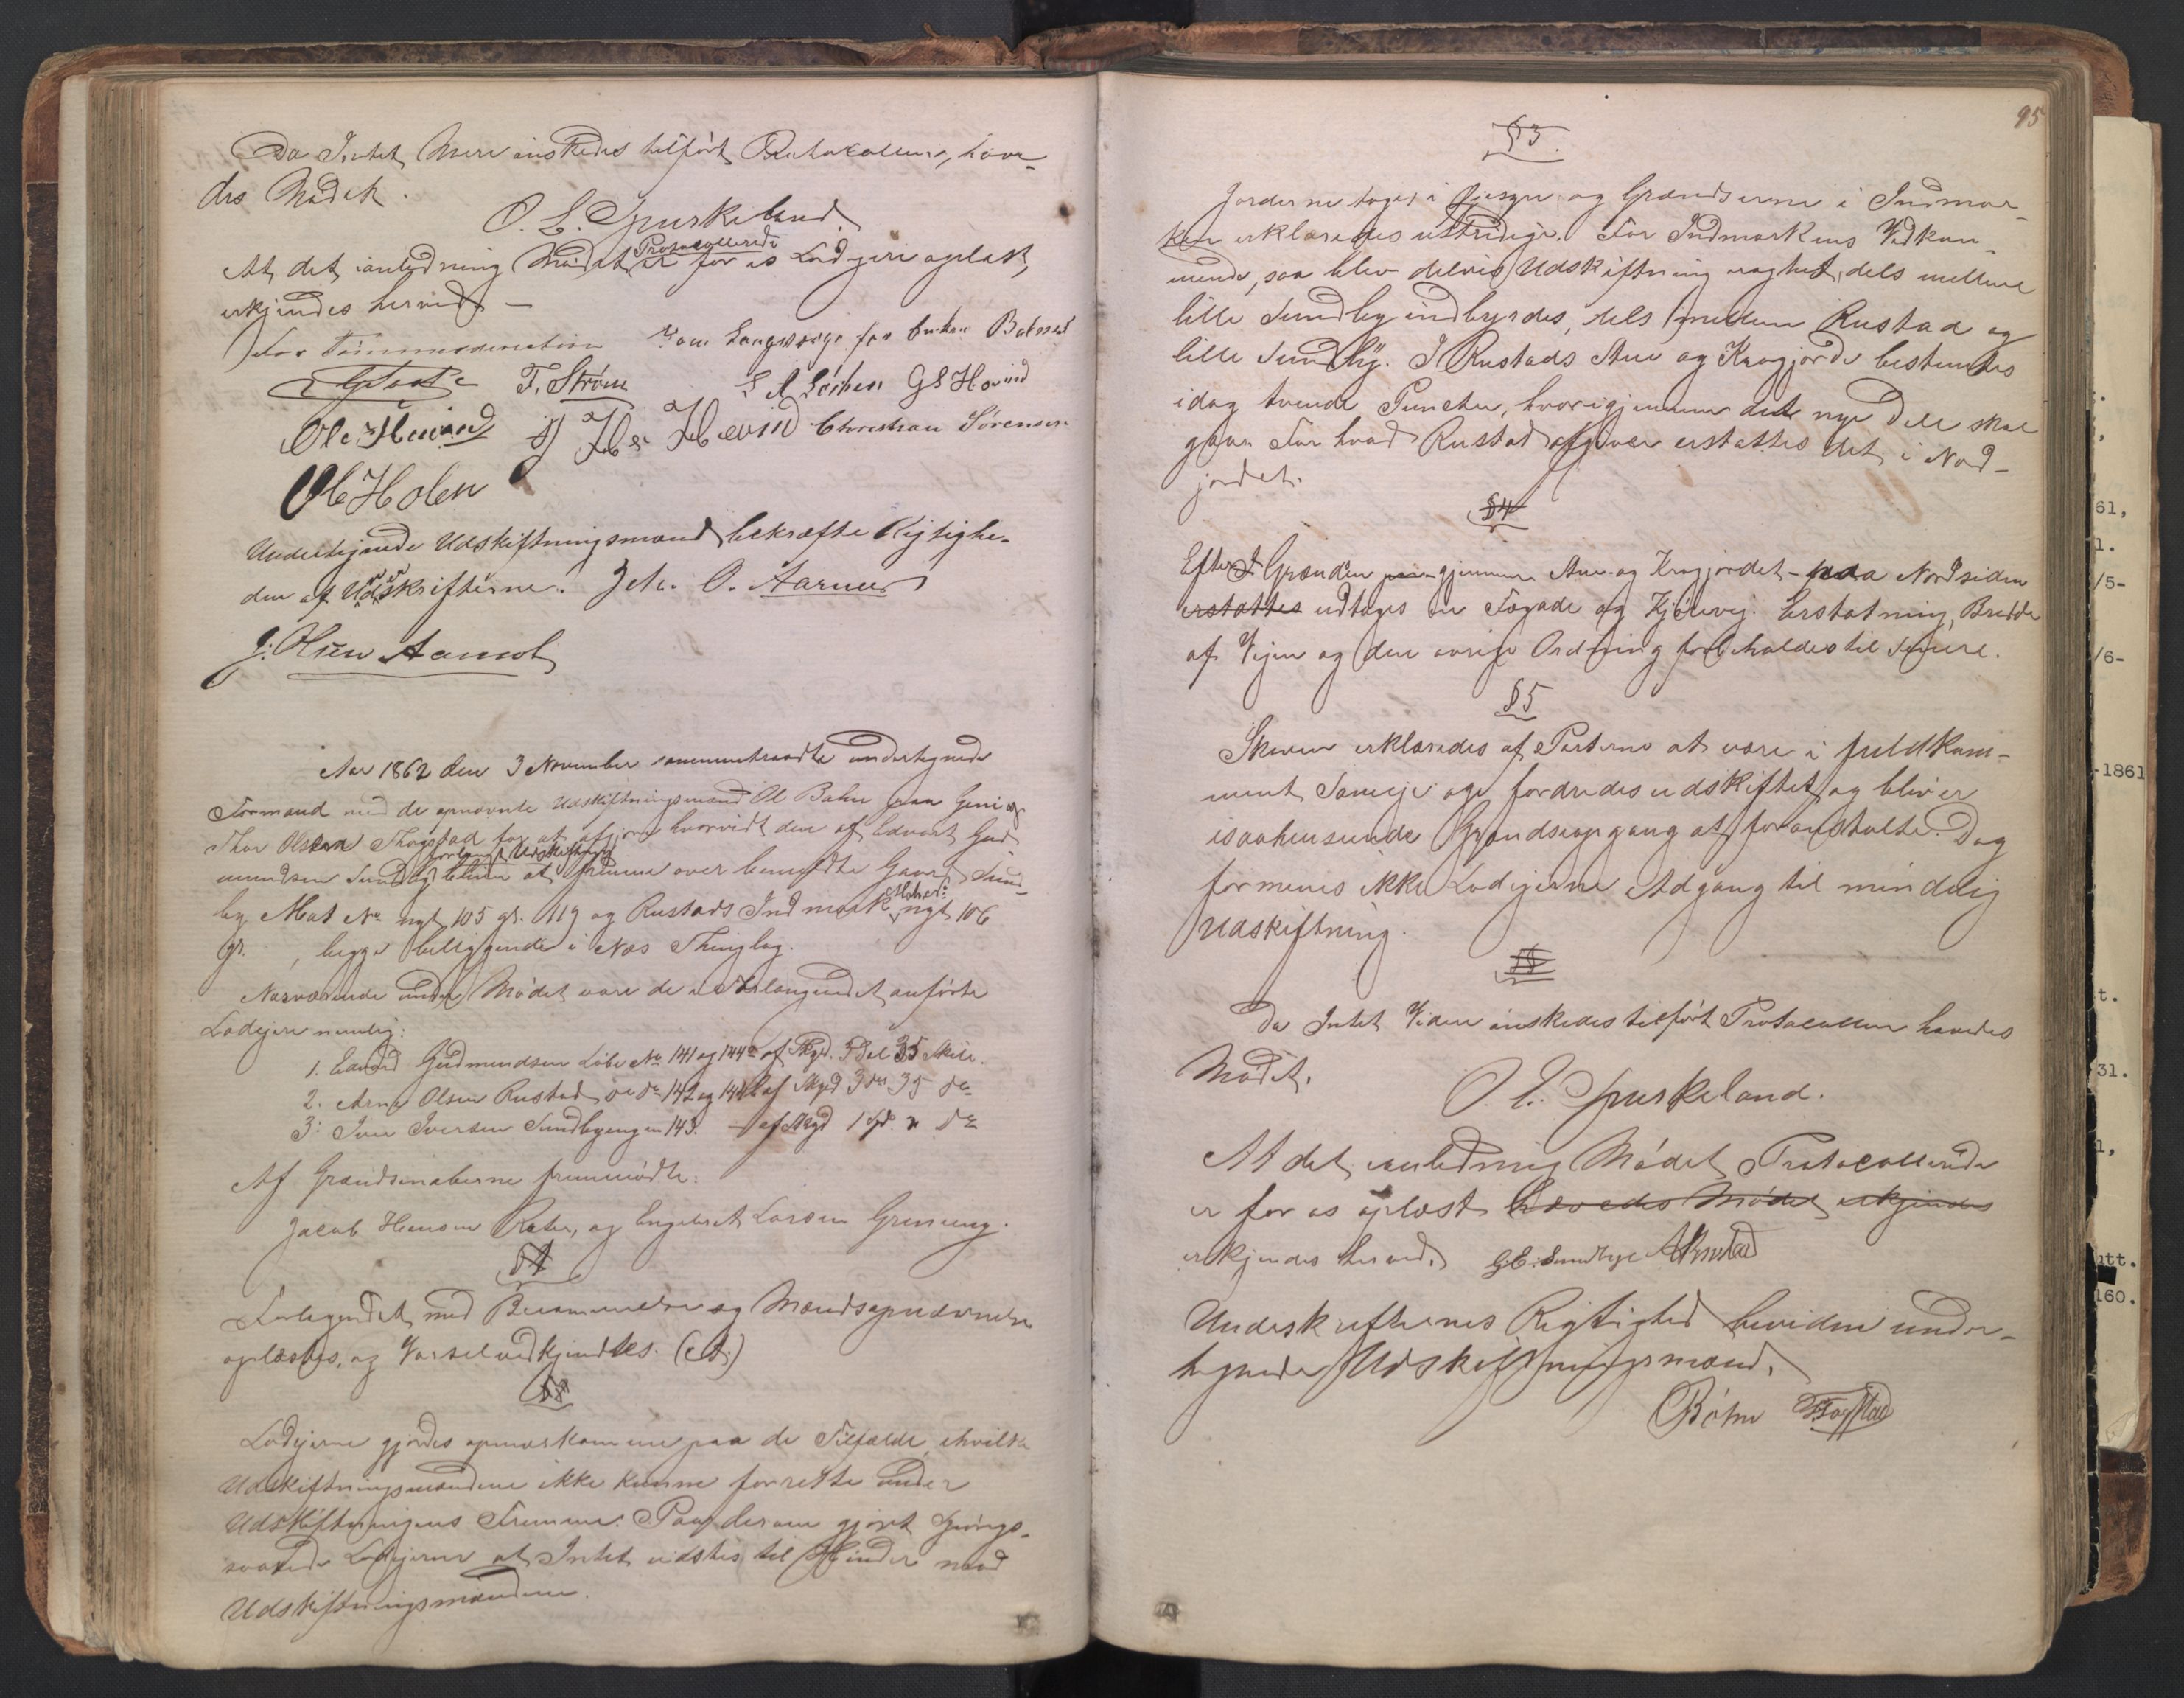 Da Intet mere önskedes tilfört Protokollen, hæve-
des Mödet.
O. E. Spurkeland.
At det ianledning Mödet Protocollerede er for os Lodejere oplæst,
erkjendes herved —
For Tömmerdirection Som Laugværge for Enken
F. Ström G E Hovind
Ole Hovind Iver Hovind Christian Sörensen
Ole Holen
Undertegnede Udskiftningsmænd bekræfte Rigtighe-
den af Underskrifterne. Joh. O. Aarnes
J. Olsen Aamot
Aar 1862 den 3 November sammentraadte undertegnede
Formand med de opnævnte Udskiftningsmænd Ol Bøhn paa Hni og
Thor Olsen Thogstad for at afgjöre hvorvidt den af Edvart Gud-
mundsen Sundby forlangte Udskiftning bliver at fremme over benævnte Gaard Sund-
by Mat No nyt 105 gl. 119 og Rustads Indmark Matr: nyt 106
gl. , begge beliggende i Næs Thinglag.
Nærværende under Mödet vare de i Forlangendet anförte
Lodejere nemlig:
1. Edvard Gudmundsen Löbe No 141 og 144a af Skyld. 3 Dal 35 Skill.
2. Arne Olsen Rustad do do 142 og 144b af Skyld 3 do 35 do
3: Iver Iversen Sundbyengen 143. — af Skyld 1 do " do
Af Grændsenaberne fremmödte:
Jacob Hansen , og Engebret Larsen
§1
Forlangendet med Berammelse og Mændsopnævnelse
oplæstes, og Varsel vedkjendtes. (A.)
§2
Lodejerne gjordes opmærksomme paa de Tilfælde, ihvilke
Udskiftningsmændene ikke kunne forrette under
Udskiftningens Fremme. Paa derom gjort Spörgs-
maal Lodejerne at Intet vidstes til Hinder mod
Udskiftningsmændene.
95
§3.
Jorderne toges i Öiesyn og Grændserne i Indmar-
ken erklæredes ustridige. For Indmarkens Vedkom-
mende, saa blev delvis Udskiftning vagtet, dels mellem
lille Sundby indbyrdes, dels mellem Rustad og
lille Sundby. I Rustads Aue og Kragjorde bestemtes
idag tvende Puncter, hvorigjennem det nye Dele skal
gaae. For hvad Rustad afgiver erstattes det i Nord-
jordet.
§4
Efter Grændsen gjennem Aue og Kragjordet - paa Nordsiden
erstattes udtages en Fægade og Kjörevej. Erstatning, Bredde
af Vejen og den övrige Ordning forbeholdes til Senere.
§5
Skoven erklæredes af Parterne at være i fuldkom-
ment Sameje og fordredes udskiftet, og bliver
isaahenseende Grændseopgang at foranstalte. Dog
formenes ikke Lodejerne Adgang til mindelig
Udskiftning.
Da Intet Videre önskedes tilfört Protocollen hævedes
Mödet.
O. E. Spurkeland.
At det ianledning Mödet Protocollerede
er for os oplæst hævedes Mödet erkjendes
erkjendes herved. G. E. Sundbye A Rustad
Underskrifternes Rigtighed bevidne under-
tegnede Udskiftningsmænd.
Böhn Togstad
61,
1.
/5-
/6-
-1861
t.
31.
1,
utt.
160.